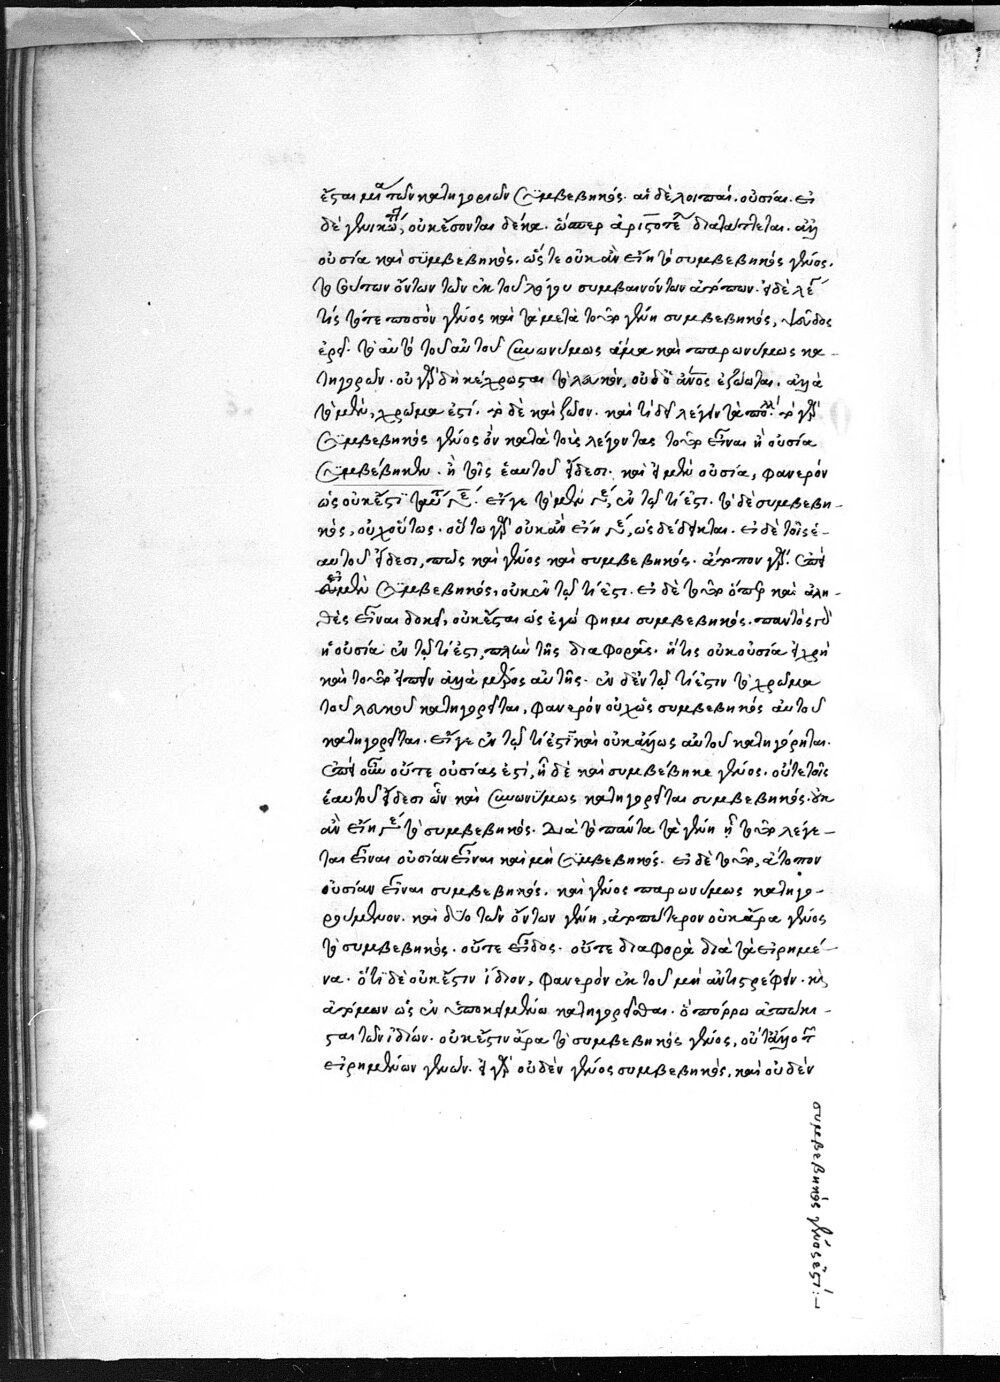 ἔσται μία τῶν κατηγοριῶν συμβεβηκός. αἱ δὲ λοιπαί, οὐσίαι. εἰ
δὲ γενικώ, οὐκ ἔσονται δέκα. ὥσπερ ἀριστοτέ διατάττεται. ἀλλ
οὐσία καὶ συμβεβηκός. ὥστε οὐκ ἂν εἴη τὸ συμβεβηκὸς γένος.
τούτων ὄντων τῶν ἐκ τοῦ λόγου συμβαινόντων ἀτόπων. εἰ δὲ λέγει
τίς τό τε ποσὸν γένος καὶ τὰ μετὰ τοῦτο γένη συμβεβηκός, ψεῦδος
ἐρεῖ. τὸ αὐτὸ τοῦ αὐτοῦ συνωνύμως ἅμα καὶ παρωνύμως κα-
τηγορῶν. οὐ γὰρ δὴ κέχρωσται τὸ λευκόν, οὐδ ὁ ἄνος ἐζώωται. ἀλλὰ
τὸ μὲν, χρῶμα ἐστί. ὁ δὲ καὶ ζῶον. καὶ τί δεῖ λέγειν τὰ πολλά. τὸ γὰρ
συμβεβηκὸς γένος ὂν κατὰ τοὺς λέγοντας τοῦτο εἶναι ἢ οὐσία
συμβέβηκεν. ἢ τοῖς ἑαυτοῦ εἴδεσι. καὶ εἰ μὲν οὐσία, φανερὸν
ὡς οὐκ ἔστι ταύτης γέ. εἴγε τὸ μὲν γέ, ἐν τῷ τί ἐστι. τὸ δὲ συμβεβη-
κός, οὐχ οὕτως. οὕτω γὰρ οὐκ ἂν εἴη γέ, ὡς δέδεικται. εἰ δὲ τοῖς ἑ-
αυτοῦ εἴδεσι, πῶς καὶ γένος καὶ συμβεβηκός. ἄτοπον γάρ. ἐπεὶ
εἰ μὲν συμβεβηκός, οὐκ ἐν τῷ τί ἐστι. εἰ δὲ τοῦτο ὅπερ καὶ ἀλη-
θὲς εἶναι δοκεῖ, οὐκ ἔσται ὡς ἐγώ φημι συμβεβηκός. παντὸς γὰρ
ἡ οὐσία ἐν τῷ τί ἐστι, πλὴν τῆς διαφορᾶς. ἥτις οὐκ οὐσία εἰ χρὴ
καὶ τοῦτο εἰπεῖν ἀλλὰ μέρος αὐτῆς. ἐν δὲ τῷ τί ἐστιν τὸ χρῶμα
τοῦ λευκοῦ κατηγορεῖται, φανερὸν οὐχ ὡς συμβεβηκὸς αὐτοῦ
κατηγορεῖται. εἴγε ἐν τῷ τί ἐστι καὶ οὐκ ἄλλως αὐτοῦ κατηγόρηται.
ἐπεὶ οὖν οὔτε οὐσίας ἐστί, ἣ δὲ καὶ συμβέβηκε γένος. οὔτε τοῖς
ἑαυτοῦ εἴδεσι ὧν καὶ συνωνύμως κατηγορεῖται συμβεβηκός. οὐκ
ἂν εἴη γέ τὸ συμβεβηκός. διὰ τὸ πάντα τὰ γένη ᾗ τοῦτο λέγε-
ται εἶναι οὐσίαν εἶναι καὶ μὴ συμβεβηκός. εἰ δὲ τοῦτο, ἄτοπον
οὐσίαν εἶναι συμβεβηκός. καὶ γένος παρωνύμως κατηγο-
ρούμενον. καὶ δύο τῶν ὄντων γένη, ἀτοπώτερον οὐκ ἄρα γένος
τὸ συμβεβηκός. οὔτε εἶδος. οὔτε διαφορὰ διὰ τὰ εἰρημέ-
να. ὅτι δὲ οὐκ ἔστιν ἴδιον, φανερὸν ἐκ τοῦ μὴ ἀντιστρέφειν. καὶ
ἀτόμων ὡς ἐν ὑποκειμένω κατηγορεῖσθαι. ὃ πόρρω ἀπωκι-
σται τῶν ἰδίων. οὐκ ἔστιν ἄρα τὸ συμβεβηκὸς γένος,
εἰρημένων γενῶν. εἰ γὰρ οὐδὲν γένος συμβεβηκός, καὶ οὐδὲν
συμβεβηκὸς γένος ἐστί:—